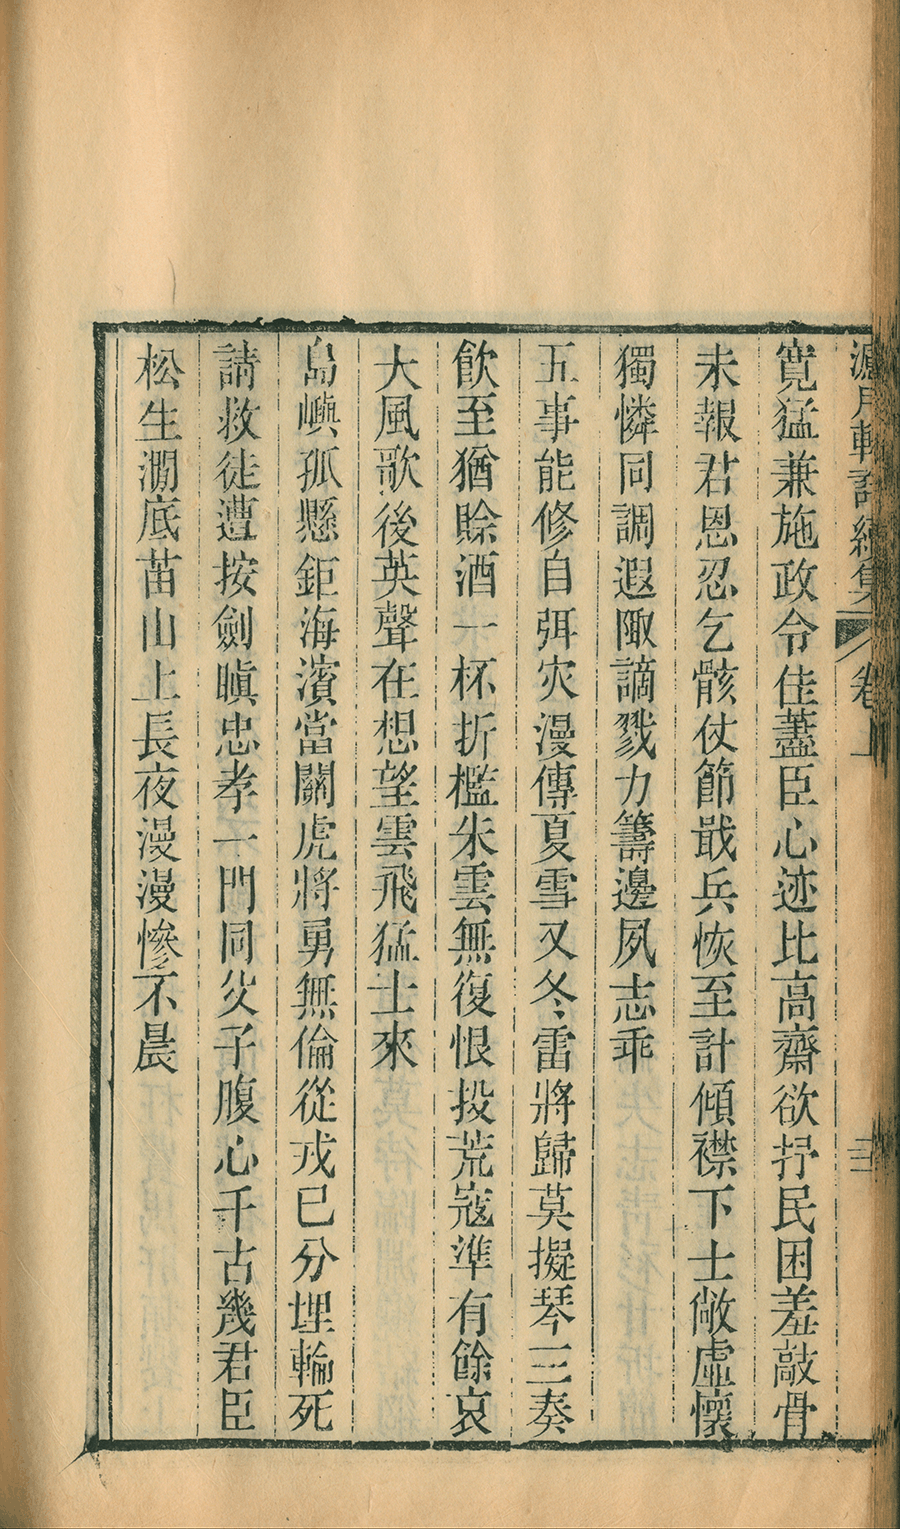 月軒詩續集 卷上 三
寬猛兼施政令佳藎臣心迹比高齋欲抒民困羞敲骨
未報君恩忍乞骸仗節戢兵恢至計傾襟下士敞虛懷
獨憐同調遐陬謫戮力籌邊夙志乖
五事能修自弭灾漫傳夏雪又冬雷將歸莫擬琴三奏
飲至猶賒酒一杯折檻朱雲無復恨投荒寇準有餘哀
大風歌後英聲在想望雲飛猛士來
島嶼孤懸鉅海濱當關虎將勇無倫從戎巳分埋輪死
請救徒遭按劍瞋忠孝一門同父子腹心千古幾君臣
松生澗底苗山上長夜漫漫慘不晨